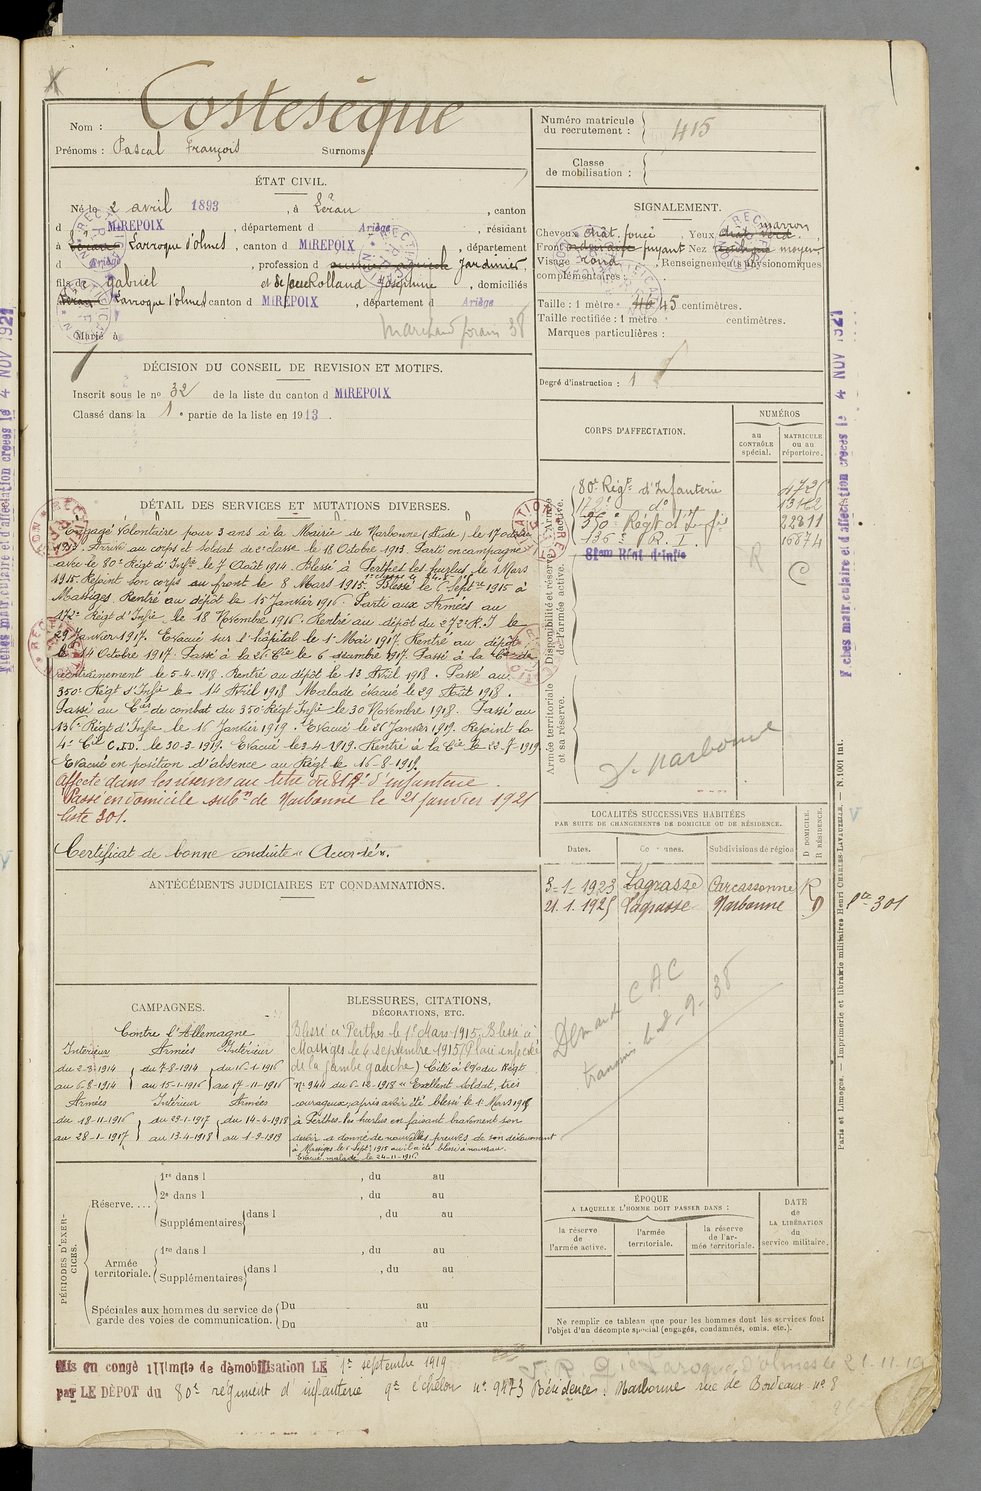 Costesèque
Nom :
Prénoms : Pascal François Surnoms :
Numéro matricule du recrutement : 415
Classe de mobilisation :
ÉTAT CIVIL.
Né le 2 avril 1893, à Léran, canton
d MIREPOIX, département d Ariège, résidant
à Léran Larroque d'olmes, canton d MIREPOIX, département
d Ariège, profession d Jardinier,
fils de Gabriel et de feue Rolland Joséphine, domiciliés
à Léran Larroque d'olmes canton d MIREPOIX, département d Ariège
Marchand forain 38
Marié à
SIGNALEMENT.
Cheveux chât. foncé, Yeux marron
Front fuyant Nez moyen
Visage rond, Renseignements physionomiques
complémentaires :
Taille : 1 mètre 46 45 centimètres.
Taille rectifiée : 1 mètre centimètres.
Marques particulières :
Degré d'instruction : 1
DÉCISION DU CONSEIL DE REVISION ET MOTIFS.
Inscrit sous le no 32 de la liste du canton d MIREPOIX
Classé dans la 1e partie de la liste en 1913.
CORPS D'AFFECTATION.
NUMÉROS
au CONTRÔLE spécial.
MATRICULE ou au répertoire.
Armée active.
Disponibilité et réserve de l'armée active.
Armée territoriale et sa réserve.
80e Régt. d'Infanterie
350e Régt d'Infie 22811
136e R. I. 16674
81eme Régt d'Infie
R
C
Dt Narbonne
DÉTAIL DES SERVICES ET MUTATIONS DIVERSES.
Engagé volontaire pour 3 ans à la Mairie de Narbonne (Aude) le 17 octobre
1913. Arrivé au corps et soldat de 2e classe le 18 Octobre 1913. Parti en campagne
avec le 80e Régt d'Infie le 7 Août 1914. Blessé à Perthes les hurlus le 1 Mars
1915. Rejoint son corps au front le 8 Mars 1915. Blessé le Sept. 1915 à
Massiges. Rentré au dépôt le 15 Janvier 1916. Parti aux Armées au
172e Régt d'Infie le 18 Novembre 1916. Rentré au dépôt du 272e R.I le
29 Janvier 1917. Evacué sur l'hôpital le 1 Mai 1917. Rentré au dépôt
le 14 Octobre 1917. Passé à la 26e Cie le 6 décembre 1917. Passé à la Cie de
le 5-4-1918. Rentré au dépôt le 13 Avril 1918. Passé au
350e Régt d'Infie le 14 Avril 1918 Malade évacué le 29 Août 1918.
Passé au Cies de combat du 350e Régt Infie le 30 Novembre 1918. Passé au
136e Régt d'Infie le 16 Janvier 1919. Evacué le 26 Janvier 1919. Rejoint la
4e Cie C.I.D. le 30-3-1919. Evacué le 2-4-1919. Rentré à la Cie le 23-7-1919
Evacué en position d'absence au Régt le 16-8-1919.
Affecté dans les réserves au titre du 81e R d'infanterie.
Passé en domicile subon de Narbonne le 21 janvier 1925
liste 301.
Certificat de bonne conduite « Accordé ».
ANTÉCÉDENTS JUDICIAIRES ET CONDAMNATIONS.
LOCALITÉS SUCCESSIVES HABITÉES
PAR SUITE DE CHANGEMENTS DE DOMICILE OU DE RÉSIDENCE.
Dates. Communes. Subdivisions de région
D DOMICILE. R RÉSIDENCE.
3-1-1923 Lagrasse Carcassonne R
21.1.1925 Lagrasse Narbonne D lte 301
Demande CAC
transmis le 8-9-38
CAMPAGNES.
Contre l'Allemagne
Intérieur Armées Intérieur
du 2-8-1914 du 7-8-1914 du 16-1-1916
au 6-8-1914 au 15-1-1916 au 17-11-1916
Armées Intérieur Armées
du 18-11-1916 du 29-1-1917 du 14-4-1918
au 28-1-1917 au 13-4-1918 au 1-9-1919
BLESSURES, CITATIONS,
DÉCORATIONS, ETC.
Blessé à Perthes le 1er Mars 1915. Blessé à
Massiges le 4 septembre 1915 (Plaie infectée
de la jambe gauche) Cité à l'O du Régt
no 944 du 6-12-1918 « Excellent soldat, très
courageux, après avoir été blessé le 1 Mars 1915
à Perthes les hurlus en faisant bravement son
devoir a donné de nouvelles preuves de son dévouement
à Massiges le Sept. 1915 où il a été blessé à nouveau.
Evacué malade le 24-11-1916
PÉRIODES D'EXERCICES.
Réserve....
1re dans l , du au
2e dans l , du au
Supplémentaires dans l , du au
Armée territoriale.
1re dans l , du au
Supplémentaires dans l , du au
Spéciales aux hommes du service de garde des voies de communication.
Du au
Du au
ÉPOQUE
A LAQUELLE L'HOMME DOIT PASSER DANS :
la réserve de l'armée active.
l'armée territoriale.
la réserve de l'armée territoriale.
DATE de LA LIBÉRATION du service militaire.
Ne remplir ce tableau que pour les hommes dont les services font
l'objet d'un décompte spécial (engagés, condamnés, omis, etc.).
Mis en congé illimité de démobilisation LE 1er septembre 1919
par LE DÉPOT du 80e régiment d'infanterie 9e échelon no 9473 Résidence : Narbonne rue de Bordeaux no 8
Paris et Limoges. — Imprimerie et librairie militaires Henri CHARLES-LAVAUZELLE. — N.1001 int.
Fiches matriculaire et d'affectation créées le 4 NOV 1921